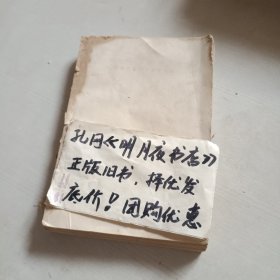 孔网《明月夜书店》
正版旧书，择优发
底价！团购优惠